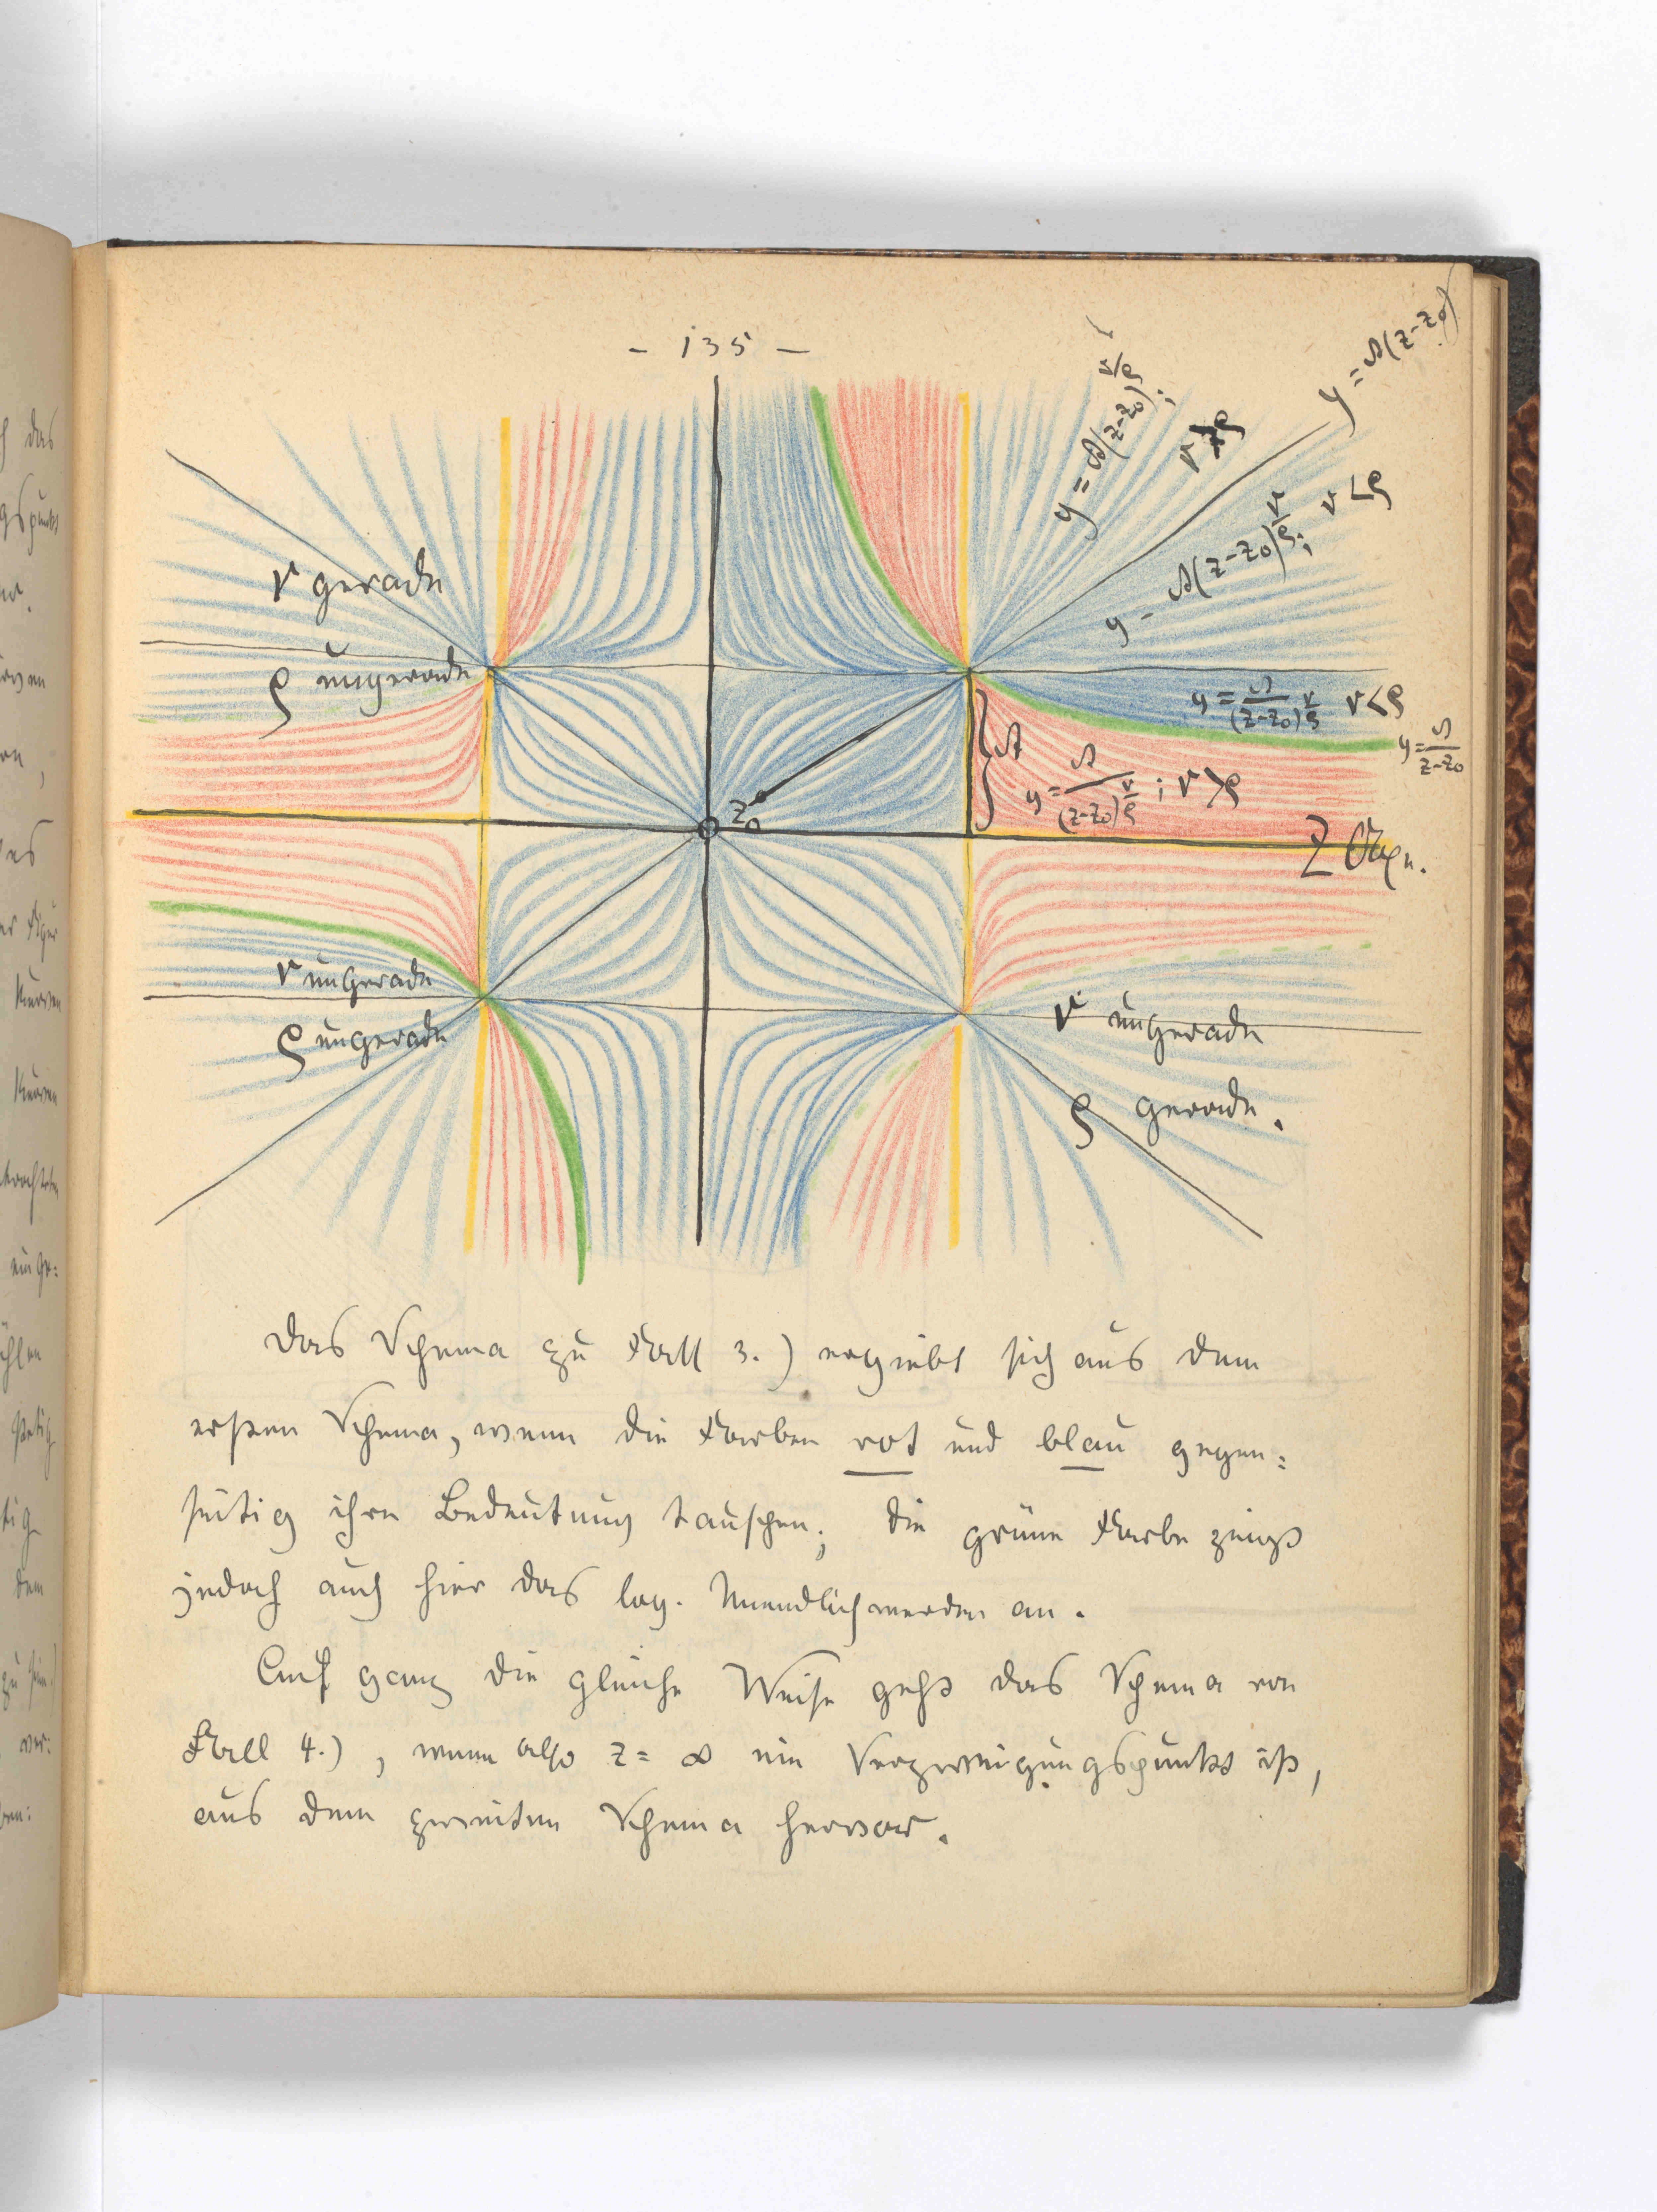 - 135 -
y = A(z-z₀)^{ν/ρ};
ν > ρ
y = A(z-z₀)
y = A(z-z₀)^{ν/ρ}; ν < ρ
ν gerade
ρ ungerade
y = A/(z-z₀)^{ν/ρ} ν < ρ
y = A/(z-z₀)
A
y = A/(z-z₀)^{ν/ρ} ; ν > ρ
z₀
Z Axe.
ν ungerade
ρ ungerade
ν ungerade
ρ gerade.
Das Schema zu Fall 3.) ergiebt sich aus dem
ersten Schema, wenn die Farben rot und blau gegen=
seitig ihre Bedeutung tauschen; die grüne Farbe zeigt
jedoch auch hier das log. Unendlichwerden an.
Auf ganz die gleiche Weise geht das Schema von
Fall 4.), wenn also z = ∞ ein Verzweigungspunkt ist,
aus dem zweiten Schema hervor.